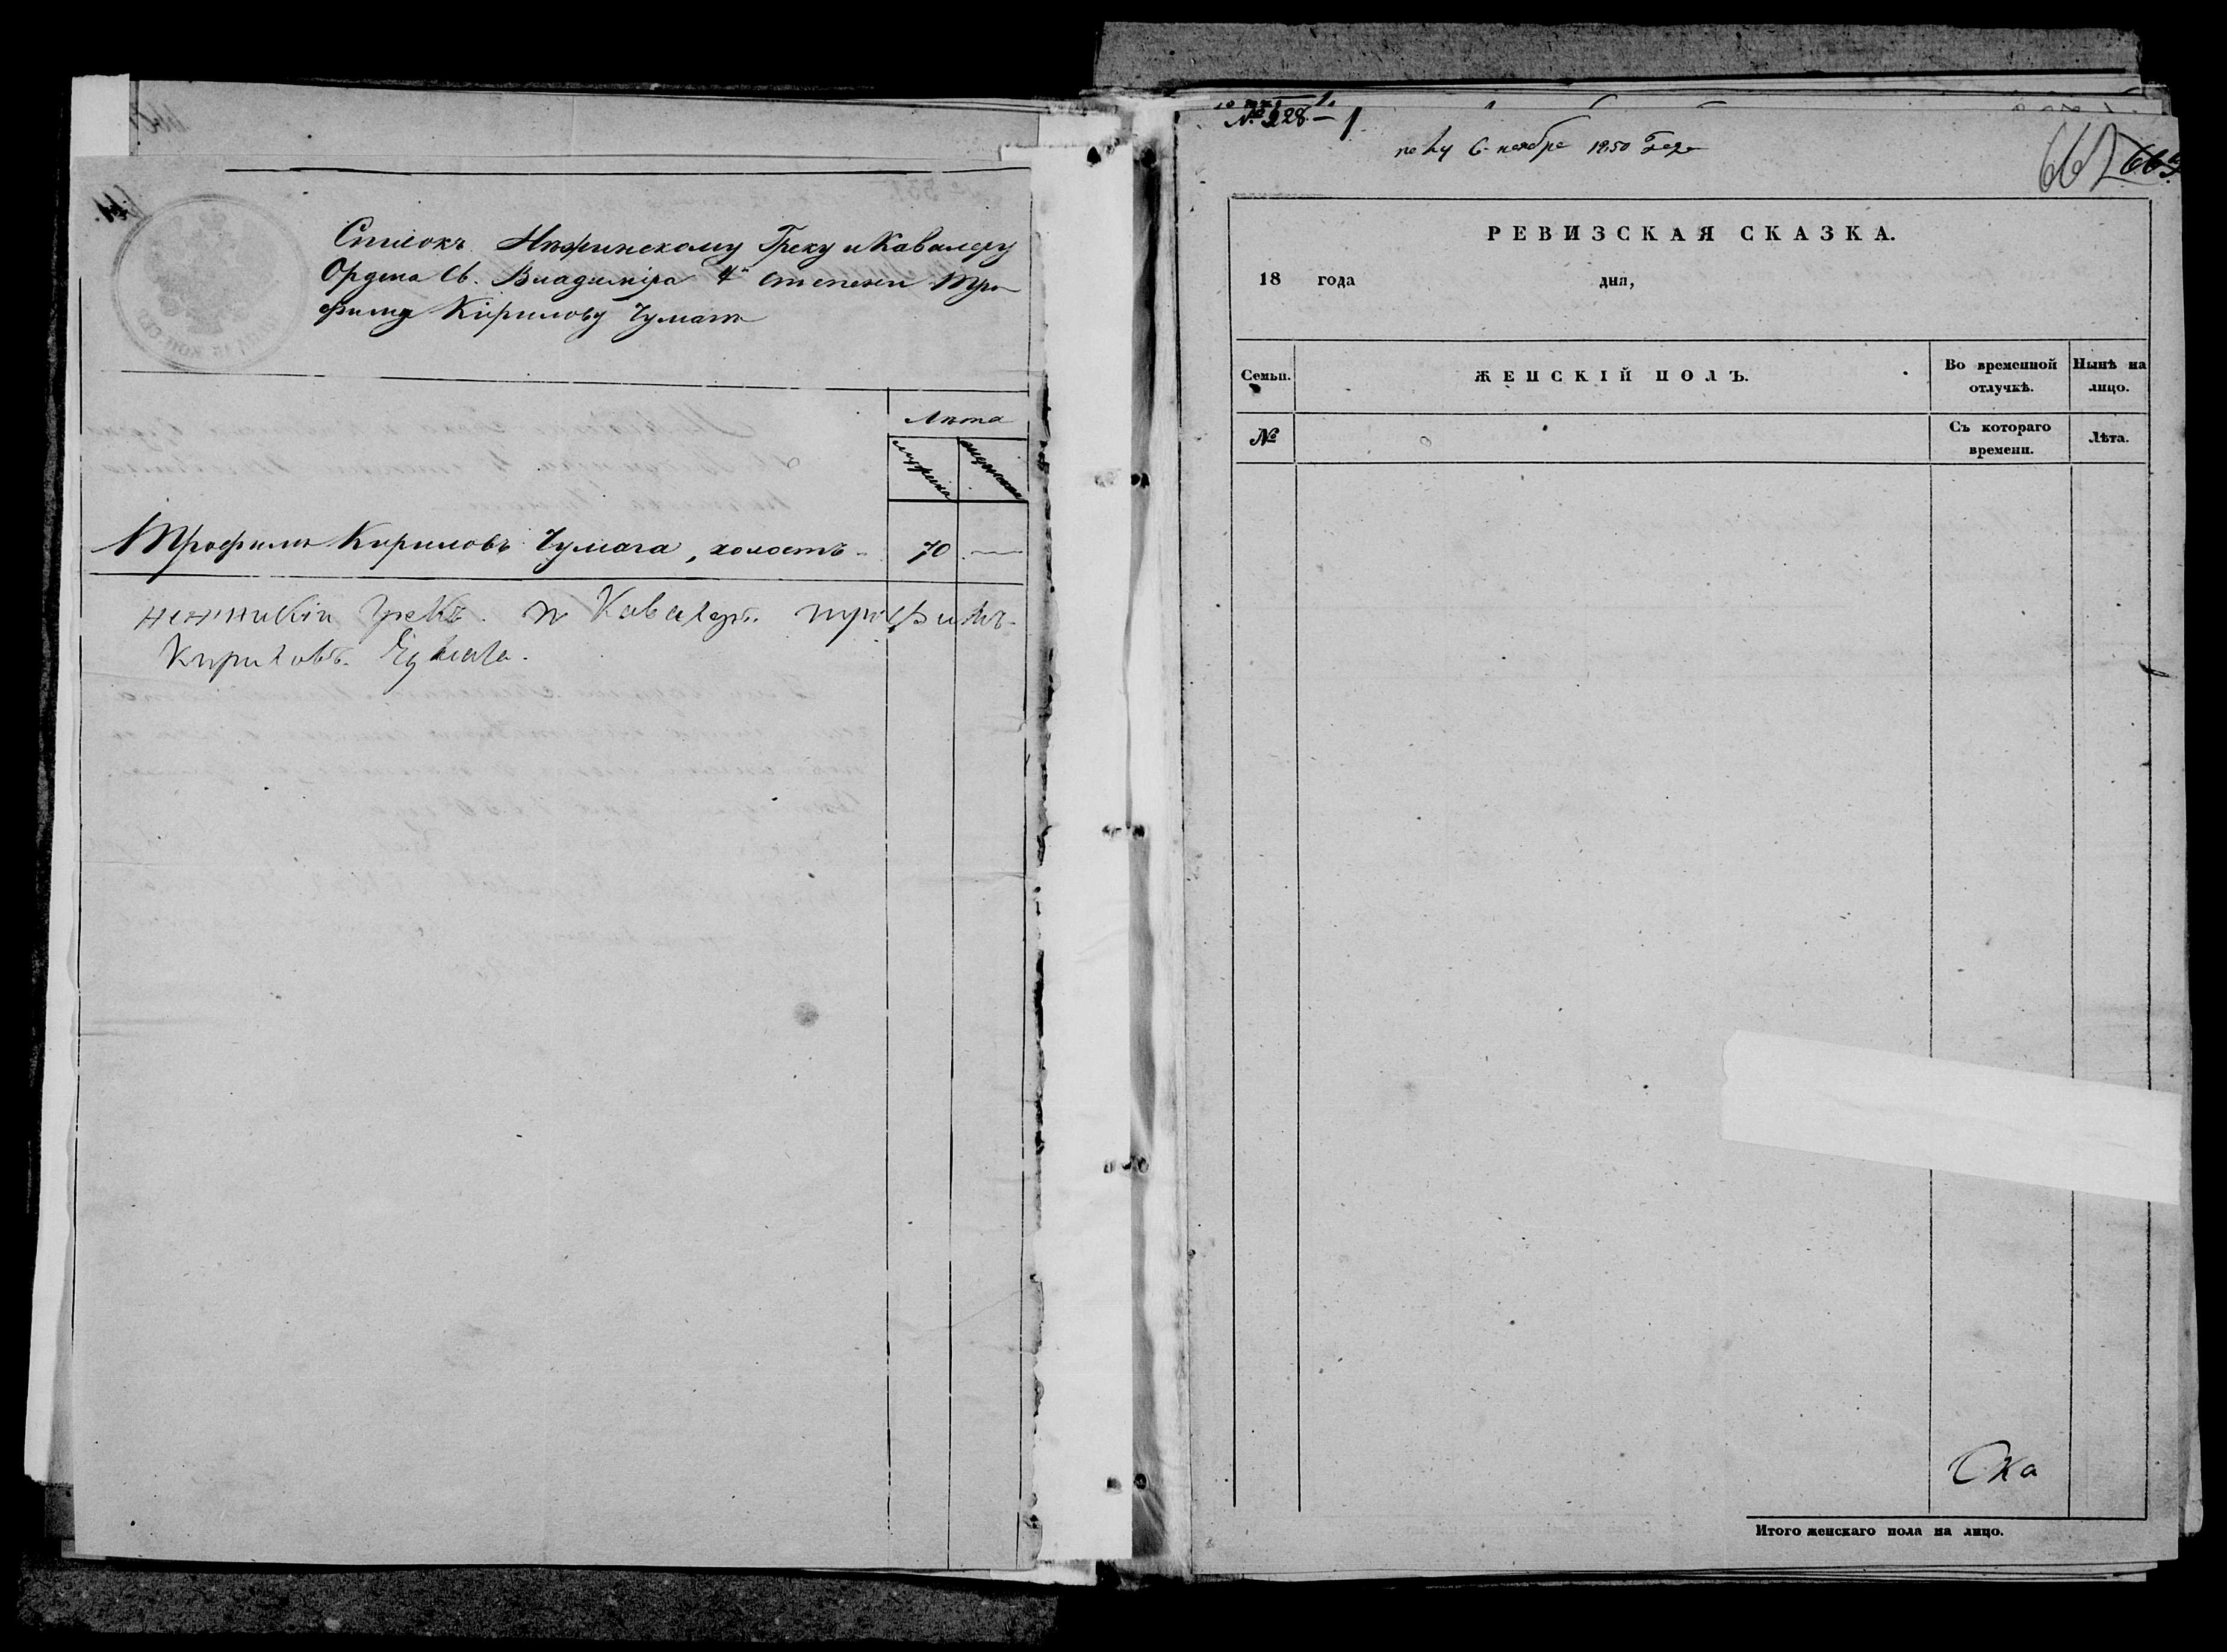 Списокъ Нѣжинскому Греку и Кавалеру
Ордена Св. Владиміра 4й степени Тро-
фиму Кирилову Чумага
Лѣта
мужеска
женска
Трофимъ Кириловъ Чумага, холостъ
70
нежинскій Грекъ и Кавалеръ трофимъ
Кириловъ Чумага.
№ 228 — 1
6 ноября 1850 года
662
РЕВИЗСКАЯ СКАЗКА.
18 года дня,
Семьи.
ЖЕНСКІЙ ПОЛЪ.
Во временной
отлучкѣ.
Нынѣ на
лицо.
№
Съ котораго
времени.
Лѣта.
Ска
Итого женскаго пола на лицо.